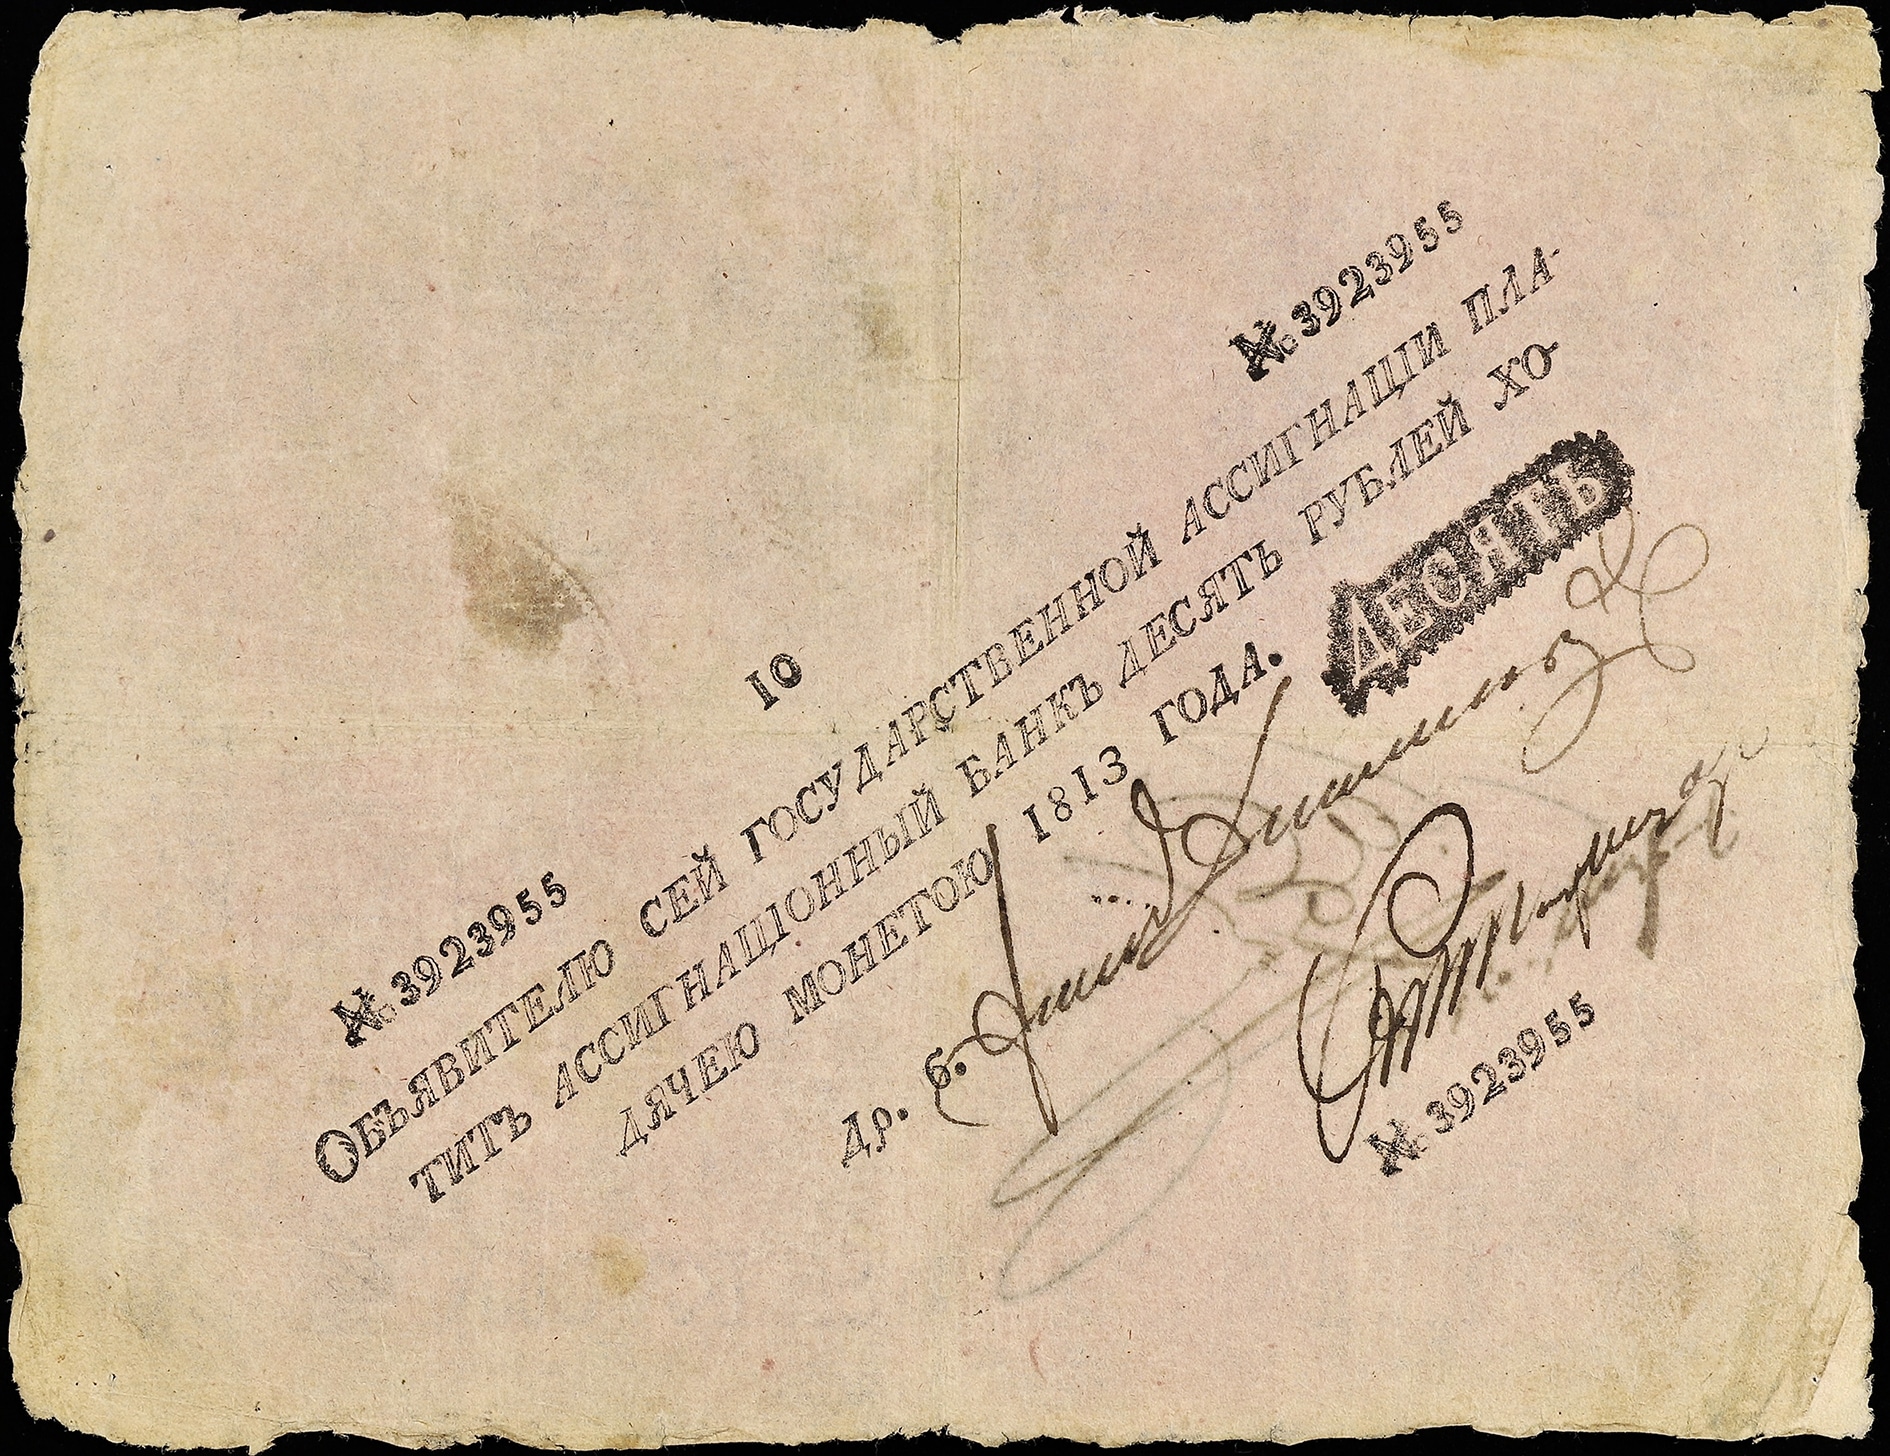 10
№ 3923955 № 3923955
ОБЪЯВИТЕЛЮ СЕЙ ГОСУДАРСТВЕННОЙ АССИГНАЦІИ ПЛА-
ТИТЪ АССИГНАЦІОННЫЙ БАНКЪ ДЕСЯТЬ РУБЛЕЙ ХО-
ДЯЧЕЮ МОНЕТОЮ 1813 ГОДА.
ДЕСЯТЬ
Др. б.
№ 3923955